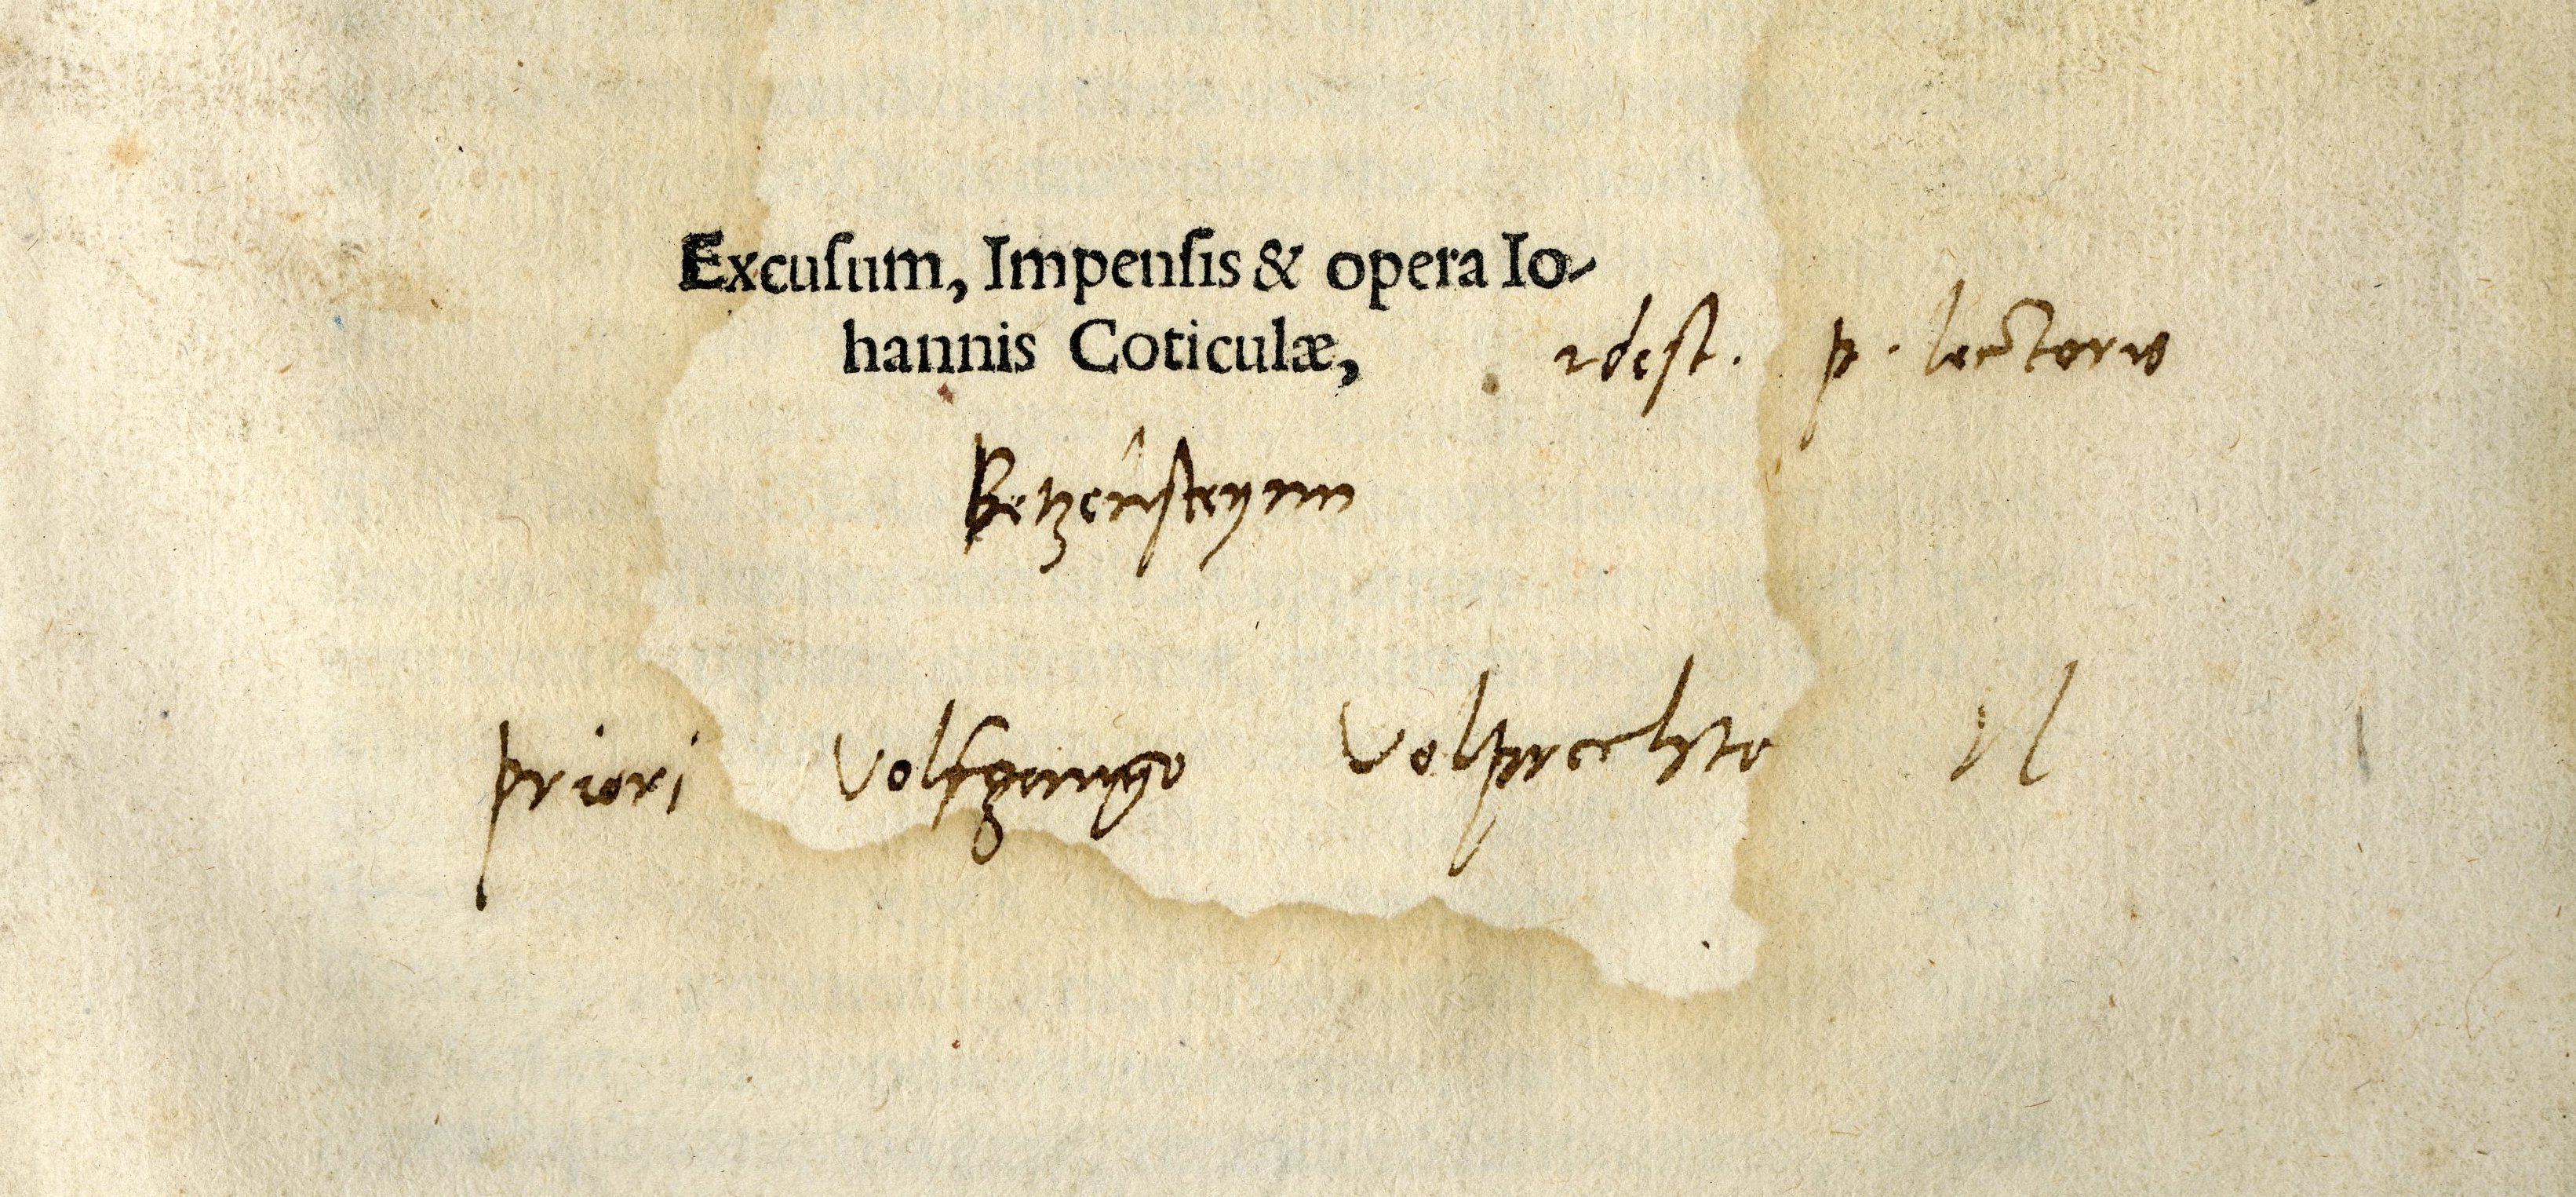 Excuſum, Impenſis & opera Io-
hannis Coticulæ, idest. p. lectoris
Betzensteynn
priori Volfgango Volprechto